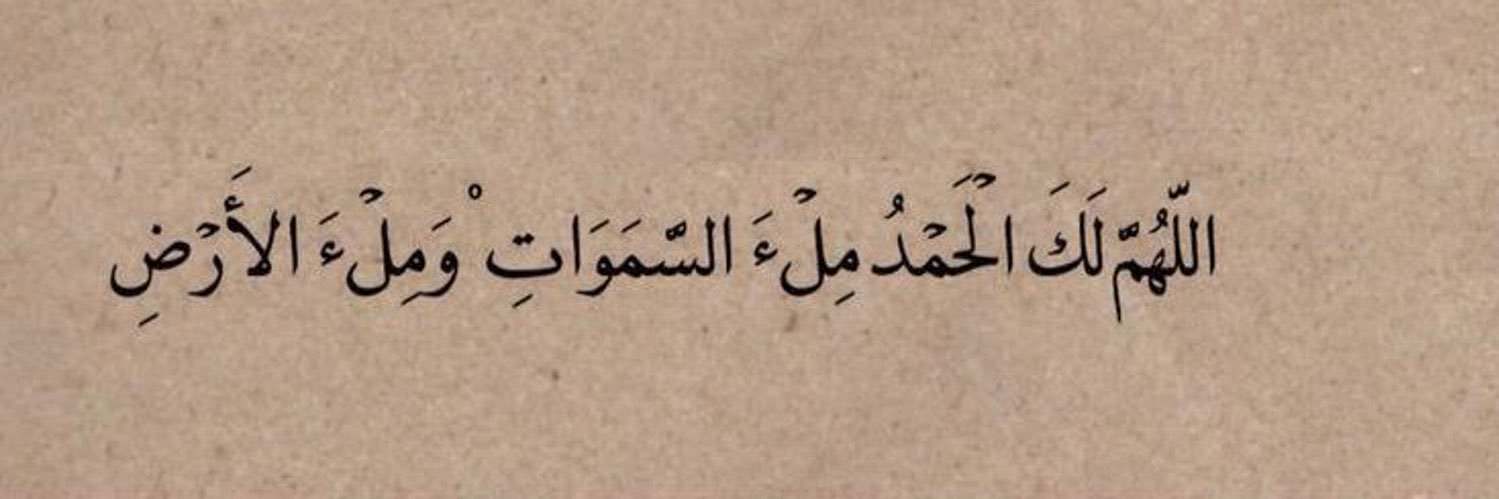 اللّٰهُمّ لَكَ الْحَمْدُ مِلْءَ السَّمَوَاتِ ْ وَمِلْءَ الأَرْضِ